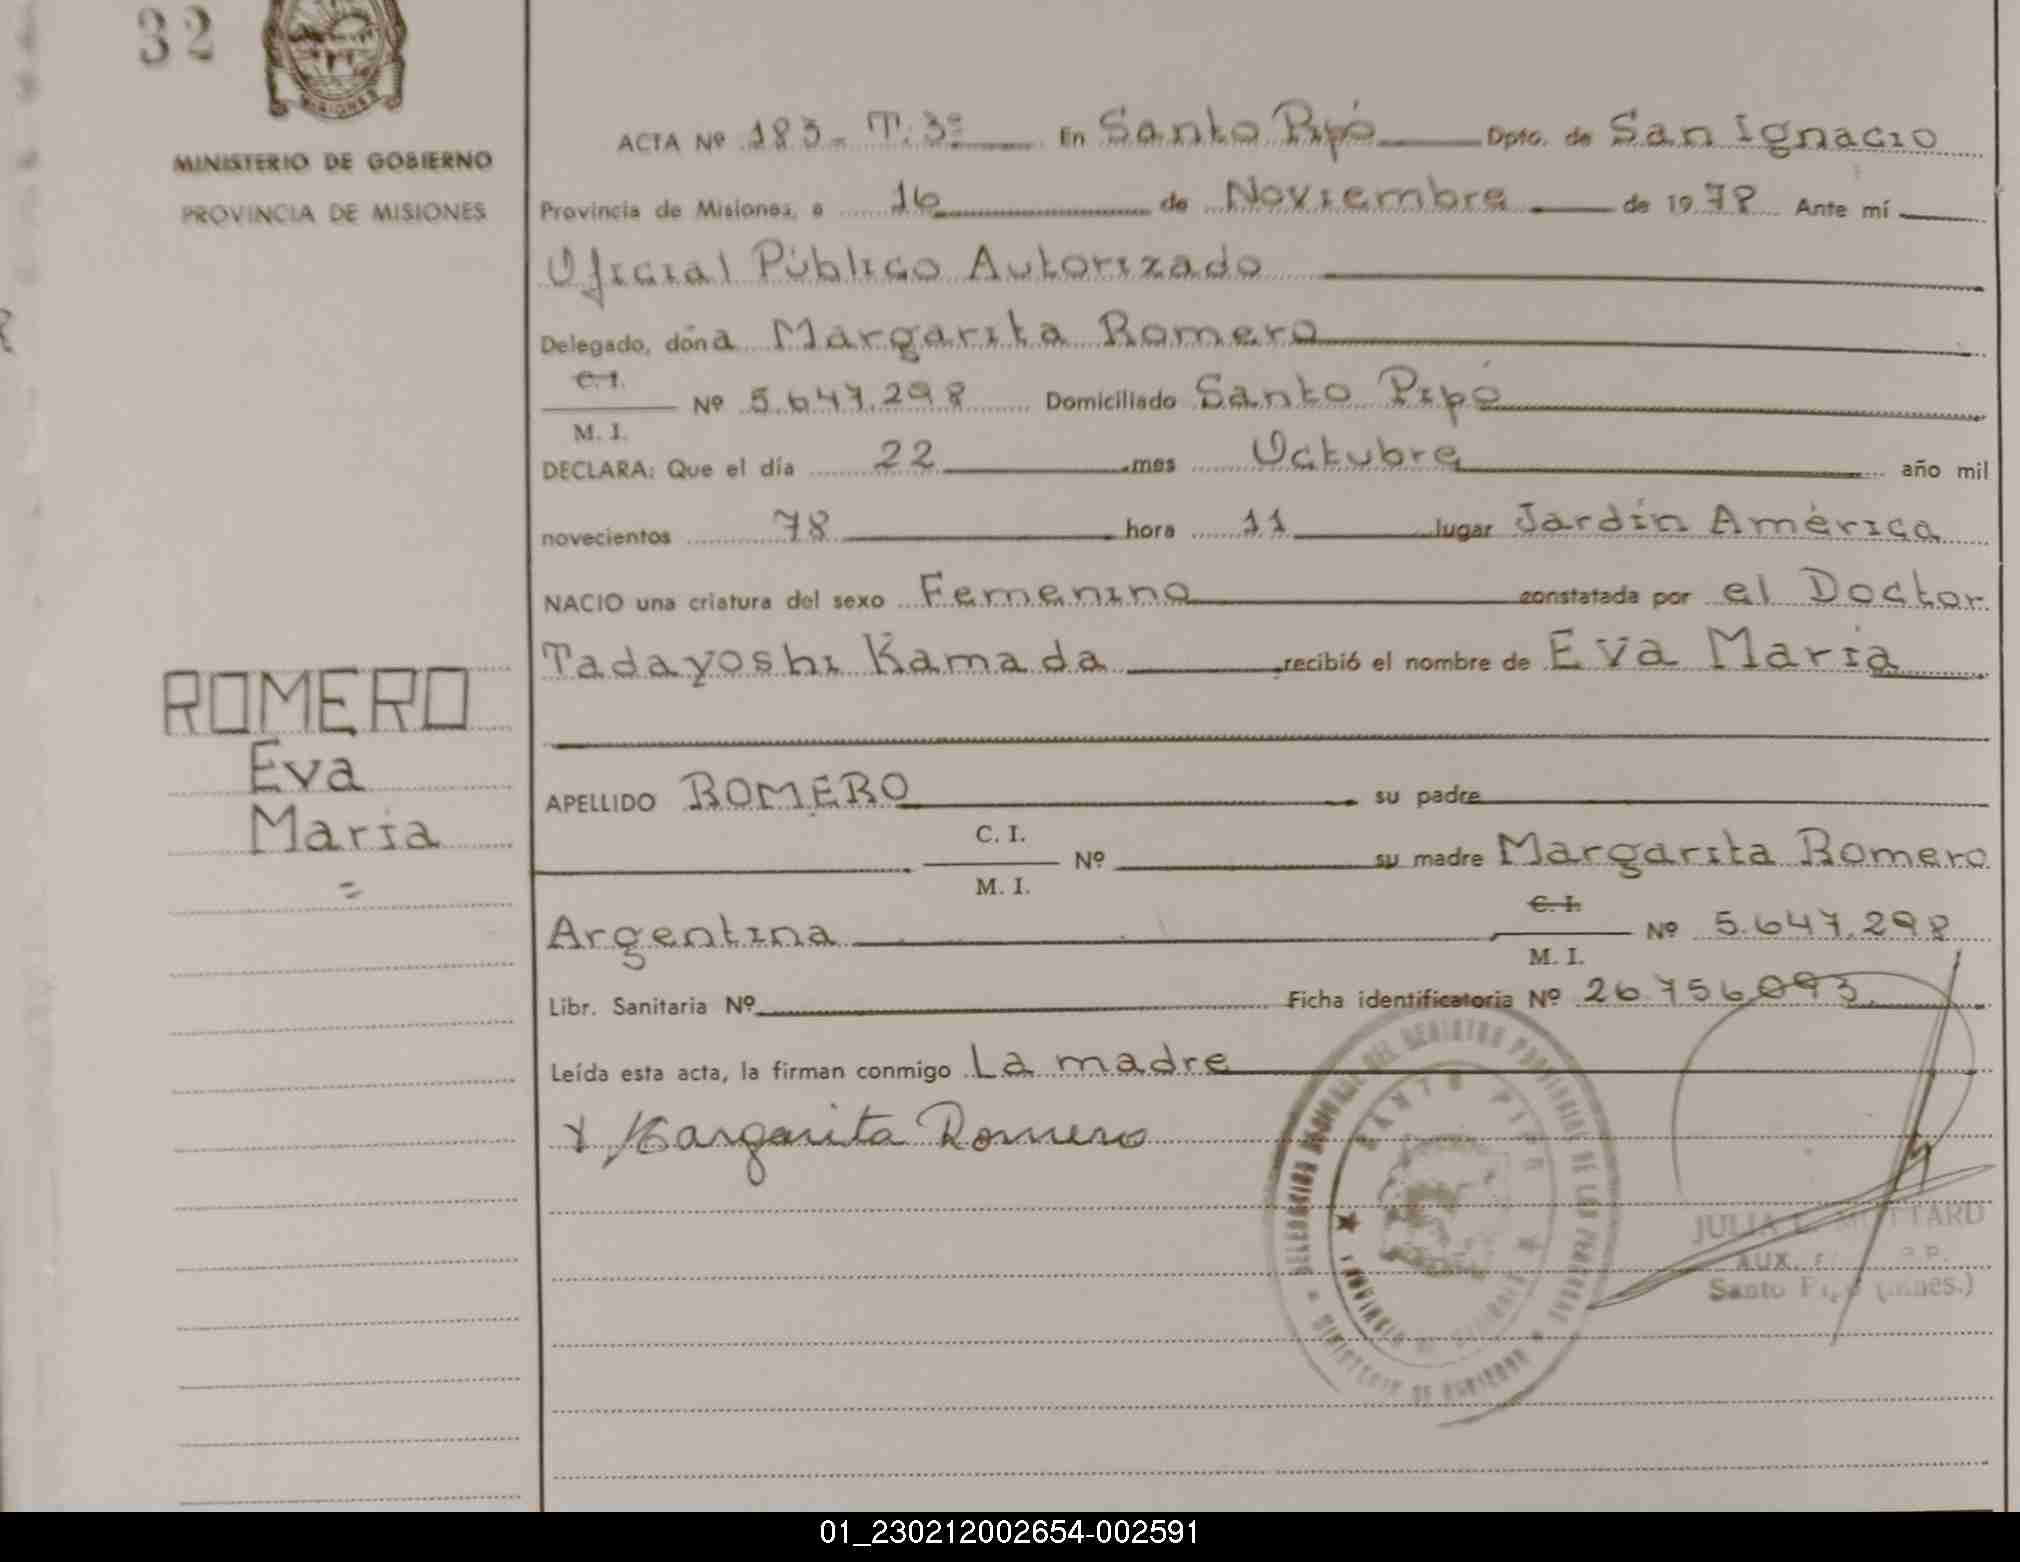 32
MISIONES
MINISTERIO DE GOBIERNO
PROVINCIA DE MISIONES
ROMERO
Eva
María
=
ACTA Nº 183 - T. 3º En Santo Pipó Dpto. de San Ignacio
Provincia de Misiones, a 16 de Noviembre de 1978 Ante mí
Oficial Público Autorizado
Delegado, doña Margarita Romero
C. I.
Nº 5.647.298 Domiciliado Santo Pipó
M. I.
DECLARA: Que el día 22 mes Octubre año mil
novecientos 78 hora 11 lugar Jardín América
NACIO una criatura del sexo Femenino constatada por el Doctor
Tadayoshi Kamada recibió el nombre de Eva María
APELLIDO ROMERO su padre
C. I.
Nº su madre Margarita Romero
M. I.
C. I.
Argentina Nº 5.647.298
M. I.
Libr. Sanitaria Nº Ficha identificatoria Nº 26.756.093
Leída esta acta, la firman conmigo La madre
x Margarita Romero
DEL REGISTRO PROVINCIAL DE LAS PERSONAS
SANTO PIPO
PROVINCIA DE MISIONES
MINISTERIO DE GOBIERNO
JULIA MOTTARD
AUX.
Santo Pipó (Mnes.)
01_230212002654-002591